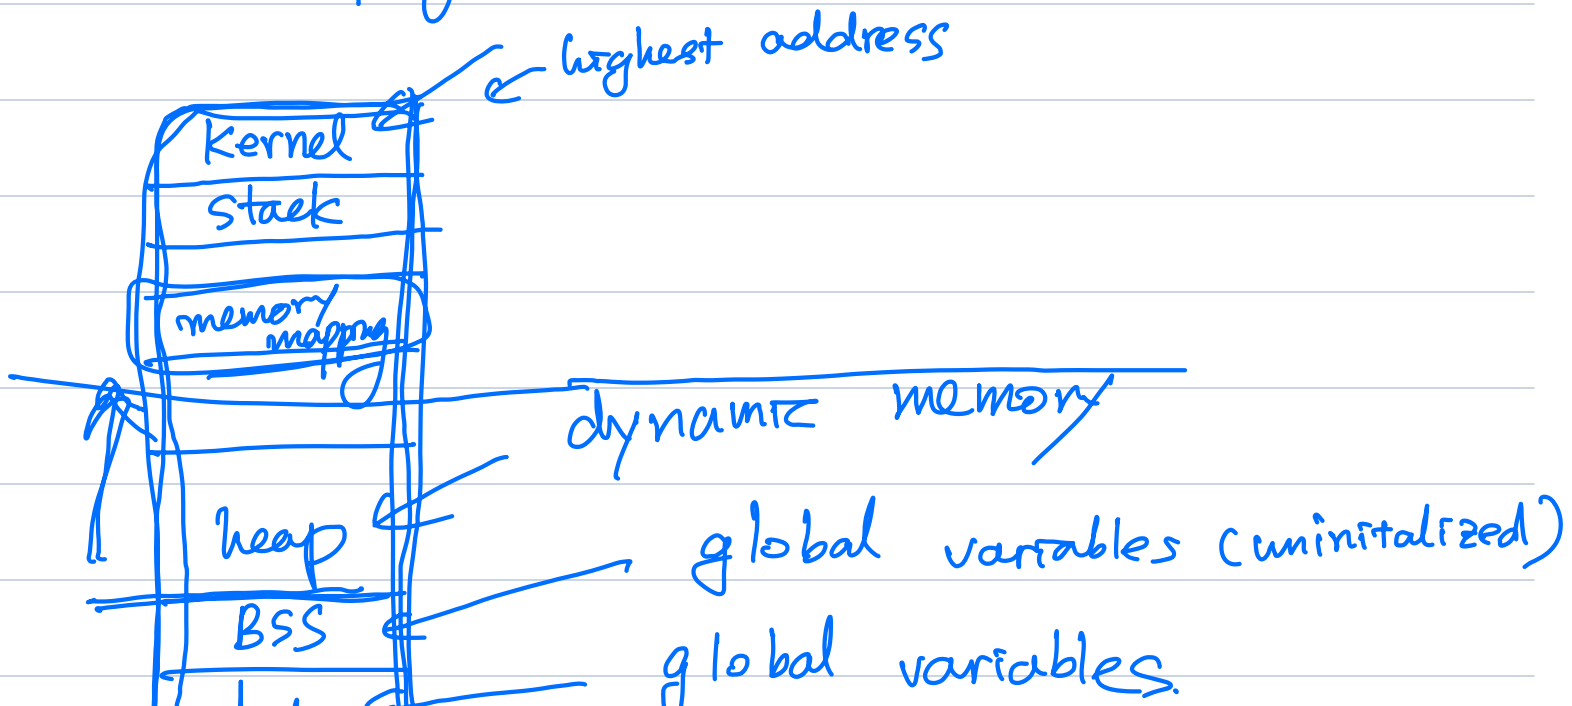 highest address
Kernel
stack
memory
mapping
dynamic memory
heap
global variables (uninitalized)
BSS
global variables